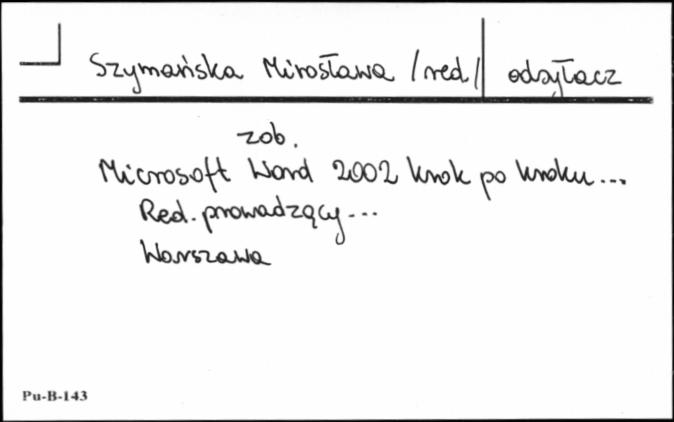 Szymańska Mirosława /red/ odsyłacz
zob.
Microsoft Word 2002 krok po kroku...
Red. prowadzący...
Warszawa
Pu-B-143